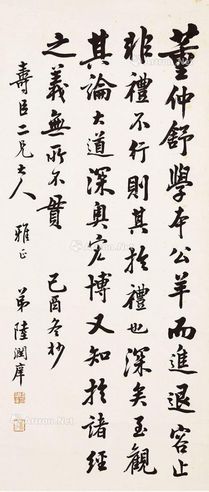 董仲舒學本公羊而進退容止
非禮不行則其於禮也深矣至觀
其論大道深奧宏博又知於諸經
之義無所不貫
己酉冬抄
壽臣二兄大人
雅正
弟陸潤庠